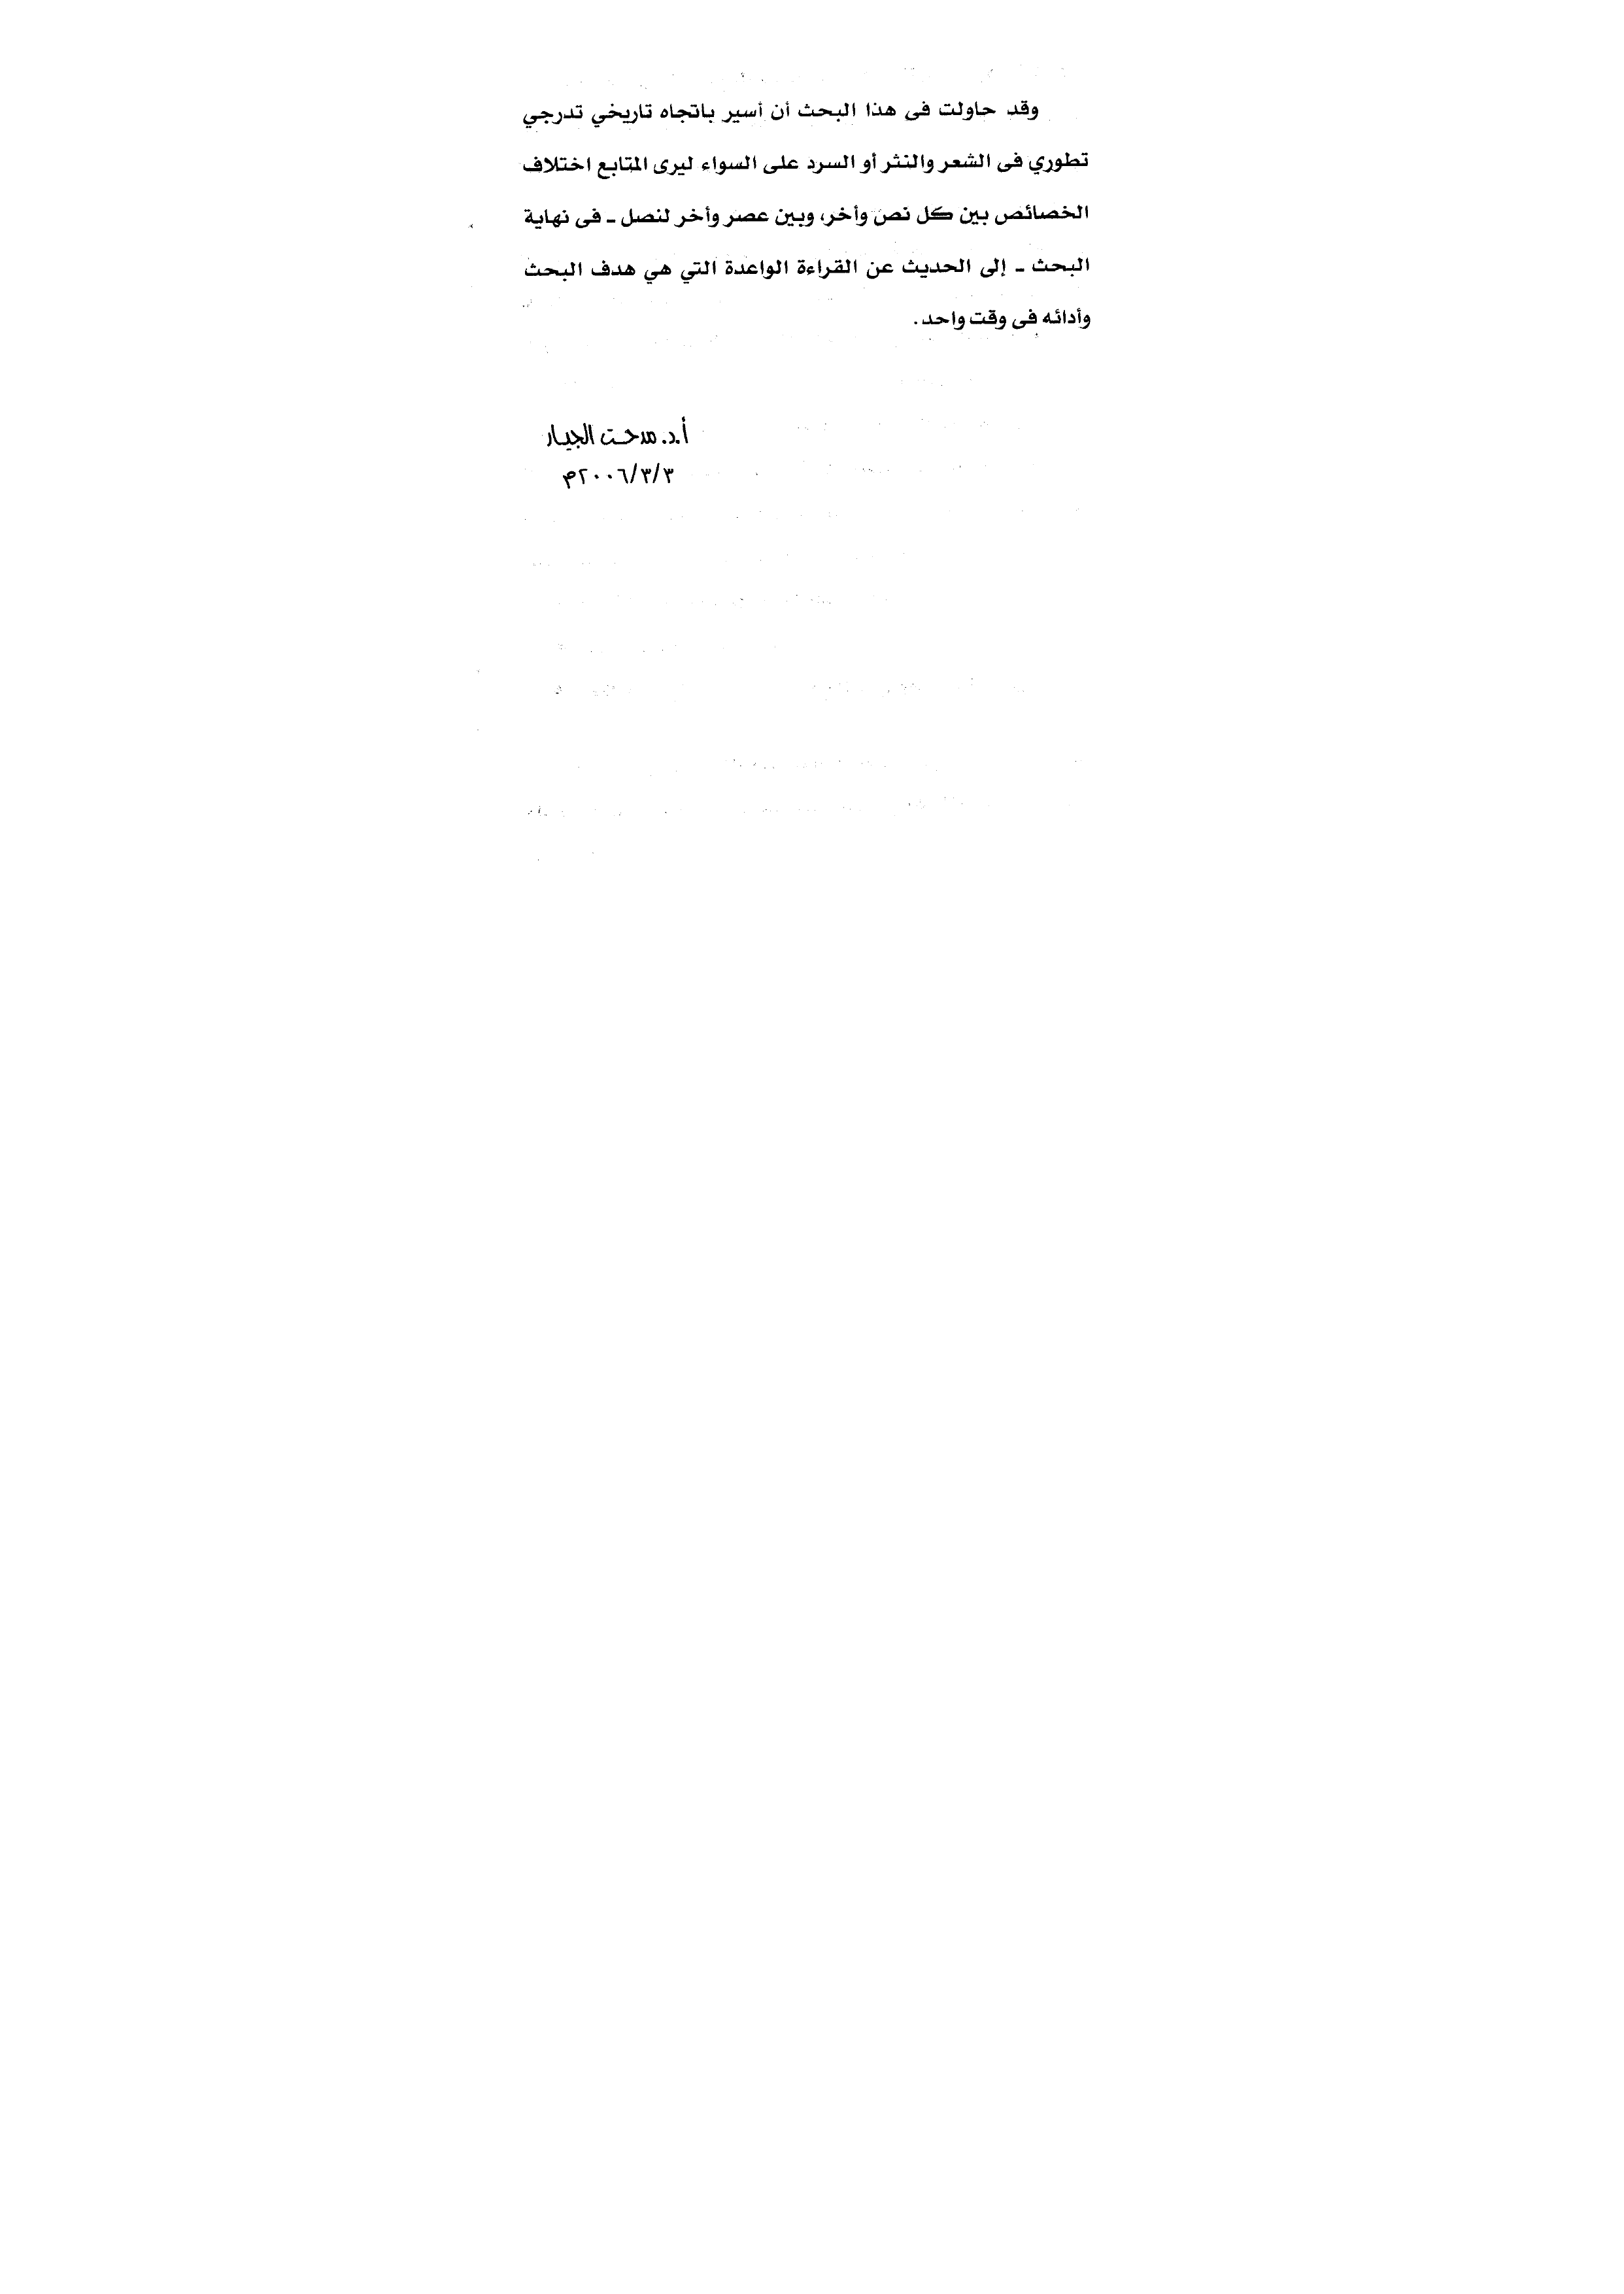 وقد حاولت فى هذا البحث أن أسير باتجاه تاريخي تدرجي
تطوري فى الشعر والنثر أو السرد على السواء ليرى المتابع اختلاف
الخصائص بين كل نص وأخر، وبين عصر وأخر لنصل ـ فى نهاية
البحث ـ إلى الحديث عن القراءة الواعدة التي هي هدف البحث
وأدائه فى وقت واحد.
أ.د. مدحت الجيار
٢٠٠٦/٣/٣م